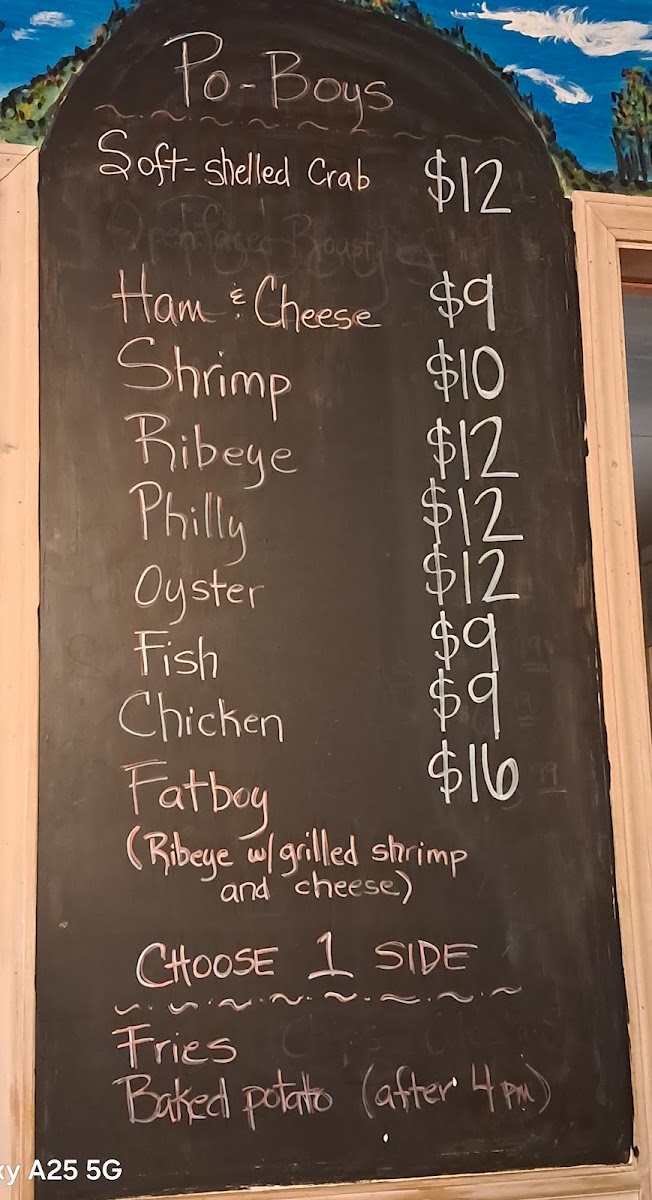 Po-Boys
Soft-shelled Crab $12
Ham & Cheese $9
Shrimp $10
Ribeye $12
Philly $12
Oyster $12
Fish $9
Chicken $9
Fatboy $16
(Ribeye w/ grilled shrimp
and cheese)
CHOOSE 1 SIDE
Fries
Baked potato (after 4 pm)
xy A25 5G